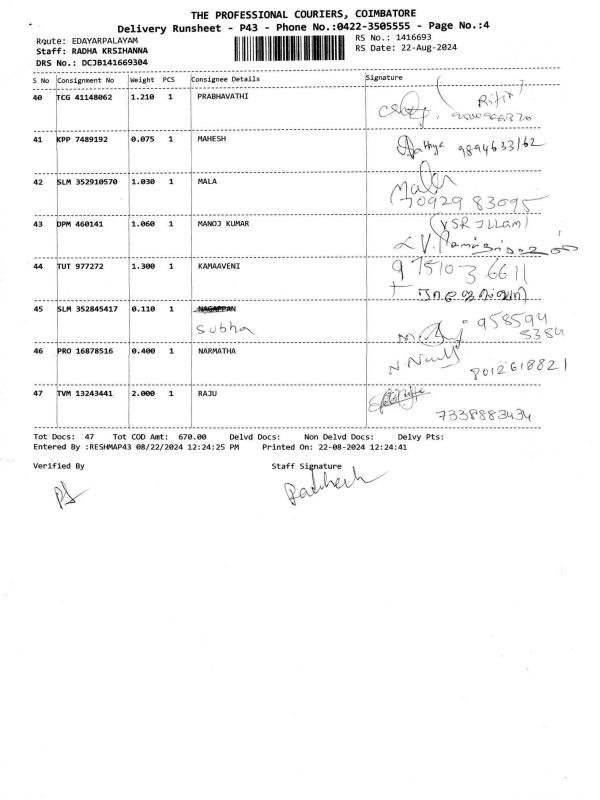 THE PROFESSIONAL COURIERS, COIMBATORE
Delivery Runsheet - P43 - Phone No.:0422-3505555 - Page No.:4
Route: EDAYARPALAYAM
RS No.: 1416693
Staff: RADHA KRSIHANNA
RS Date: 22-Aug-2024
DRS No.: DCJB141669304
S No Consignment No Weight PCS Consignee Details Signature
40 TCG 41148062 1.210 1 PRABHAVATHI
41 KPP 7489192 0.075 1 MAHESH 9894633162
42 SLM 352910570 1.030 1 MALA Mala
70929 83095
43 DPM 460141 1.060 1 MANOJ KUMAR (VSR ILLAM)
44 TUT 977272 1.300 1 KAMAAVENI 97510 3 6611
45 SLM 352845417 0.110 1 NAGAPPAN
Subha 958594
5384
46 PRO 16878516 0.400 1 NARMATHA 8012618821
47 TVM 13243441 2.000 1 RAJU
7338883434
Tot Docs: 47 Tot COD Amt: 670.00 Delvd Docs: Non Delvd Docs: Delvy Pts:
Entered By :RESHMAP43 08/22/2024 12:24:25 PM Printed On: 22-08-2024 12:24:41
Verified By Staff Signature